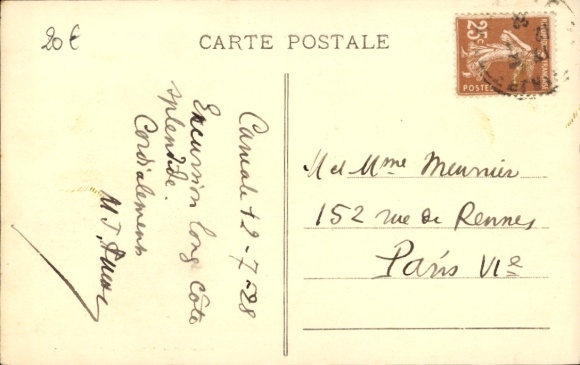 20€
CARTE POSTALE
25c
POSTES
-7-28
Excursion long côte
splendide.
Cordialement
M et Mme Meunier
152 rue de Rennes
Paris VIe